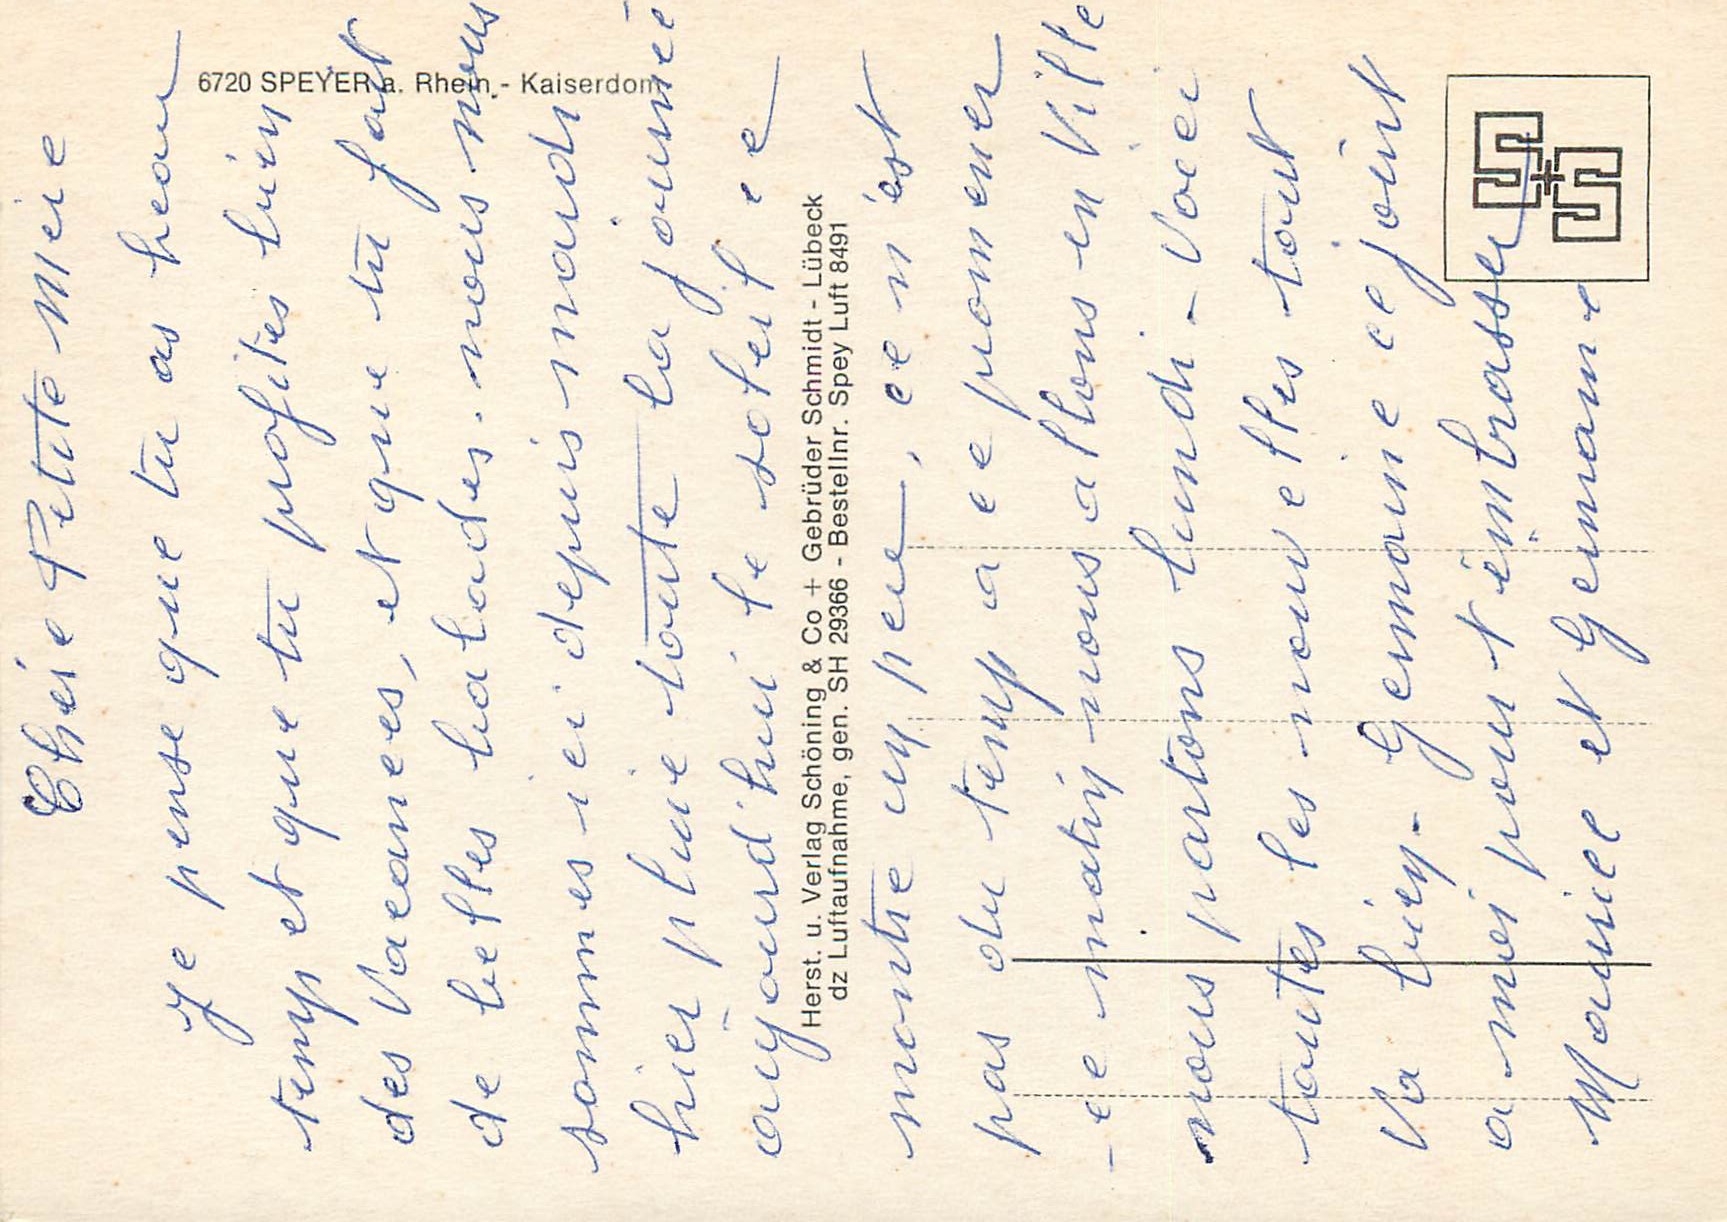 6720 SPEYER a. Rhein - Kaiserdom
Chère Petite Mère
Je pense que tu as beau
temps et que tu profites bien
des Vacances, et que tu fait
de belles balades. nous nous
sommes ici depuis mardi
hier pluie toute la journée
aujourd'hui le soleil ce
montre un peu, ce n'est
pas du temps a ce promener
- ce matin nous allons en Ville
nous partons lundi - Voici
toutes les nouvelles tout
Va bien - Germaine ce joint
a moi pour t'embrasser
Maurice et Germaine
Herst. u. Verlag Schöning & Co + Gebrüder Schmidt - Lübeck
dz Luftaufnahme, gen. SH 29366 - Bestellnr. Spey Luft 8491
S+S